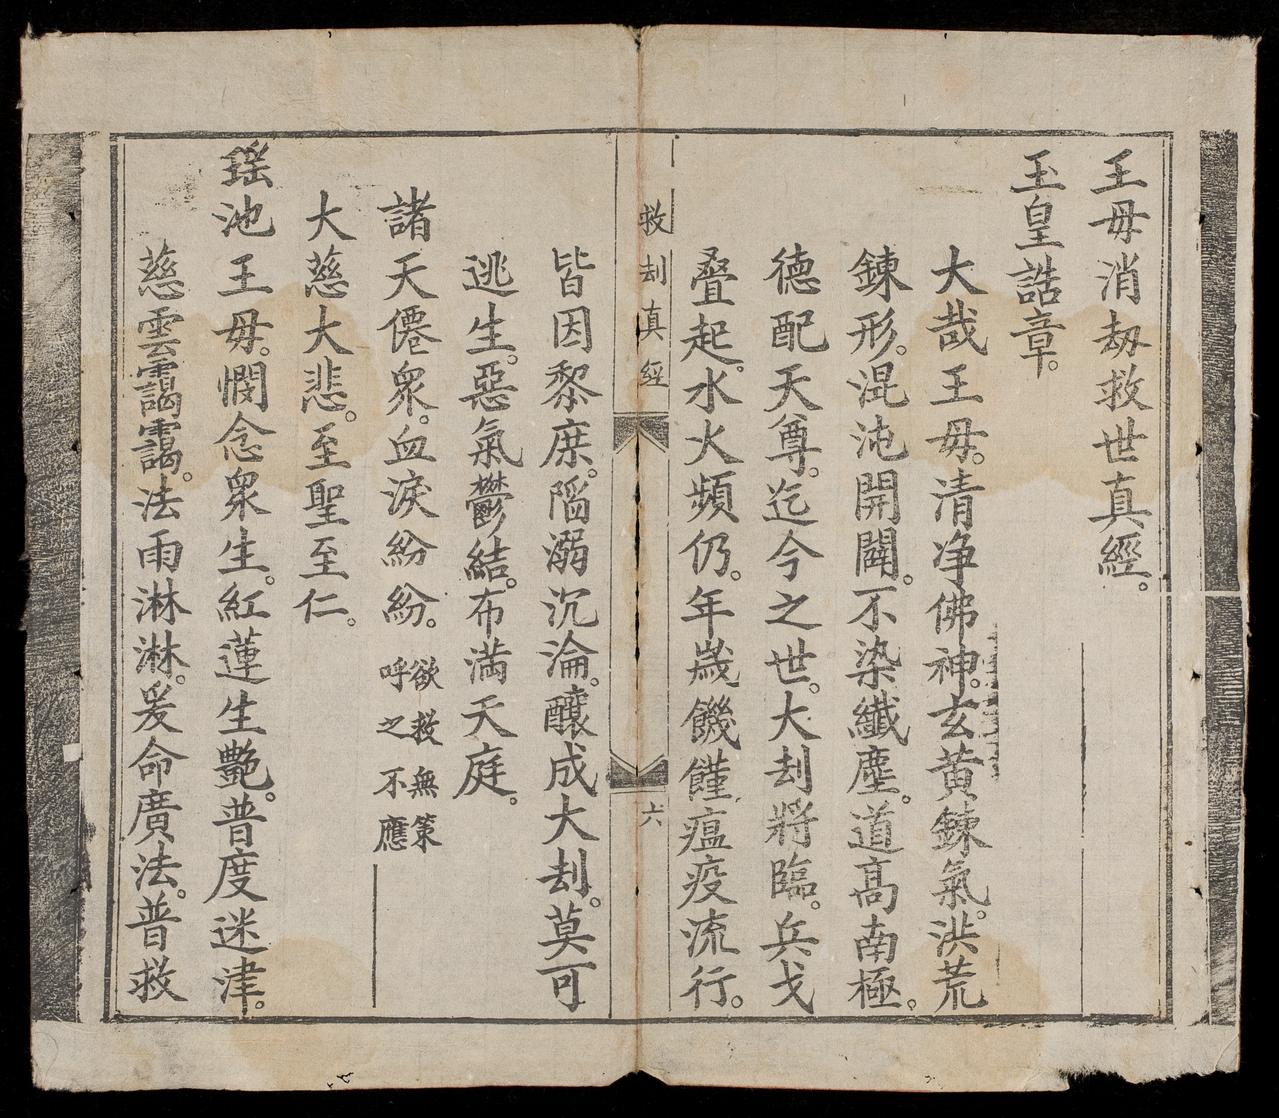 王母消刼救世真經。
玉皇誥章。
大哉王母。清净佛神。玄黄鍊氣。洪荒
鍊形。混沌開闢。不染纖塵。道高南極。
德配天尊。迄今之世。大刦將臨。兵戈
叠起。水火頻仍。年歲饑饉。瘟疫流行。
救刦真經
六
皆因黎庶。陷溺沉淪。釀成大刦。莫可
逃生。惡氣鬱結。布滿天庭。
諸天僊衆。血淚紛紛。欲救無策
呼之不應
大慈大悲。至聖至仁。
瑶池王母。憫念衆生。紅蓮生艷。普度迷津。
慈雲靄靄。法雨淋淋。爰命廣法。普救